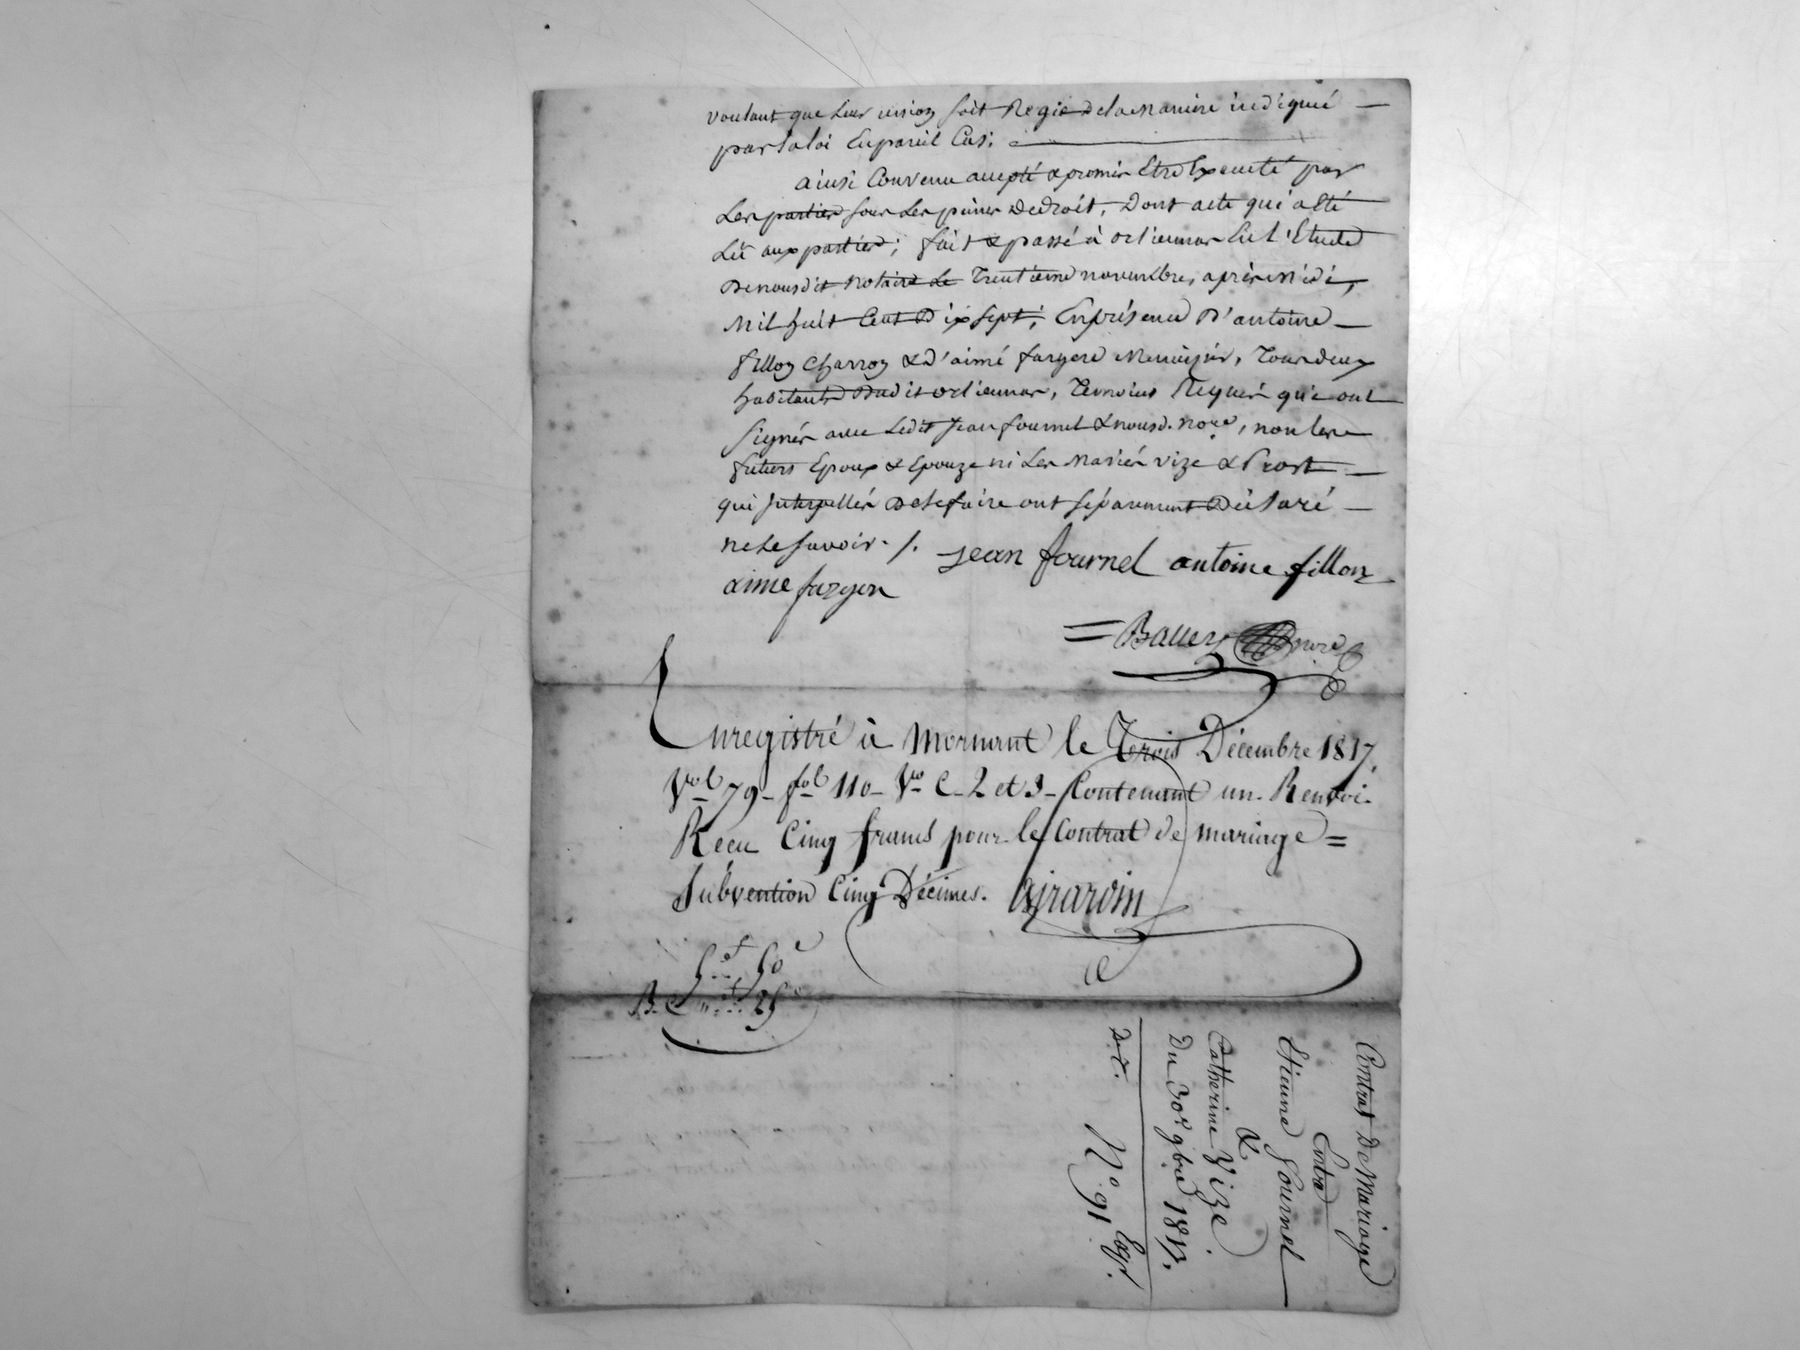 voulant que leur union soit Regie de la Maniere indiqué
par la loi En pareil Cas.
ainsi Convenu accepté & promis Etre Executé par
Les parties sous Les peines De droit, Dont acte qui a Eté
Lû aux parties; fait & passé à orliennas En l'Etude
De nousdit Notaire Le Trentieme novembre, après Midi,
Mil huit Cent Dix sept; En présence D'antoine
fillon Charron & D'aimé fargere Menuizier, Tous deux
habitants Dudit orliennas, Temoins Requis qui ont
signés avec Ledit Jean fournel & nousd. nore, non les
futurs Epoux & Epouze ni Les Mariés vize & Prost
qui Interpellés De le faire ont séparement Déclaré
ne Le savoir. /. jean fournel antoine fillon
aime fargere
Balley nore
Enregistré à Mornant le Trois Décembre 1817.
Vol 79 - fol 110 - Vo C. 2 et 3 - Contenant un Renvoi.
Recu Cinq francs pour le Contrat de mariage =
Subvention Cinq Décimes. Girardin
5f 50c
25c
Contrat De Mariage
Entre
Etienne Fournel
&
Catherine Vize.
Du 30e 9bre 1817.
N° 91 Expt.